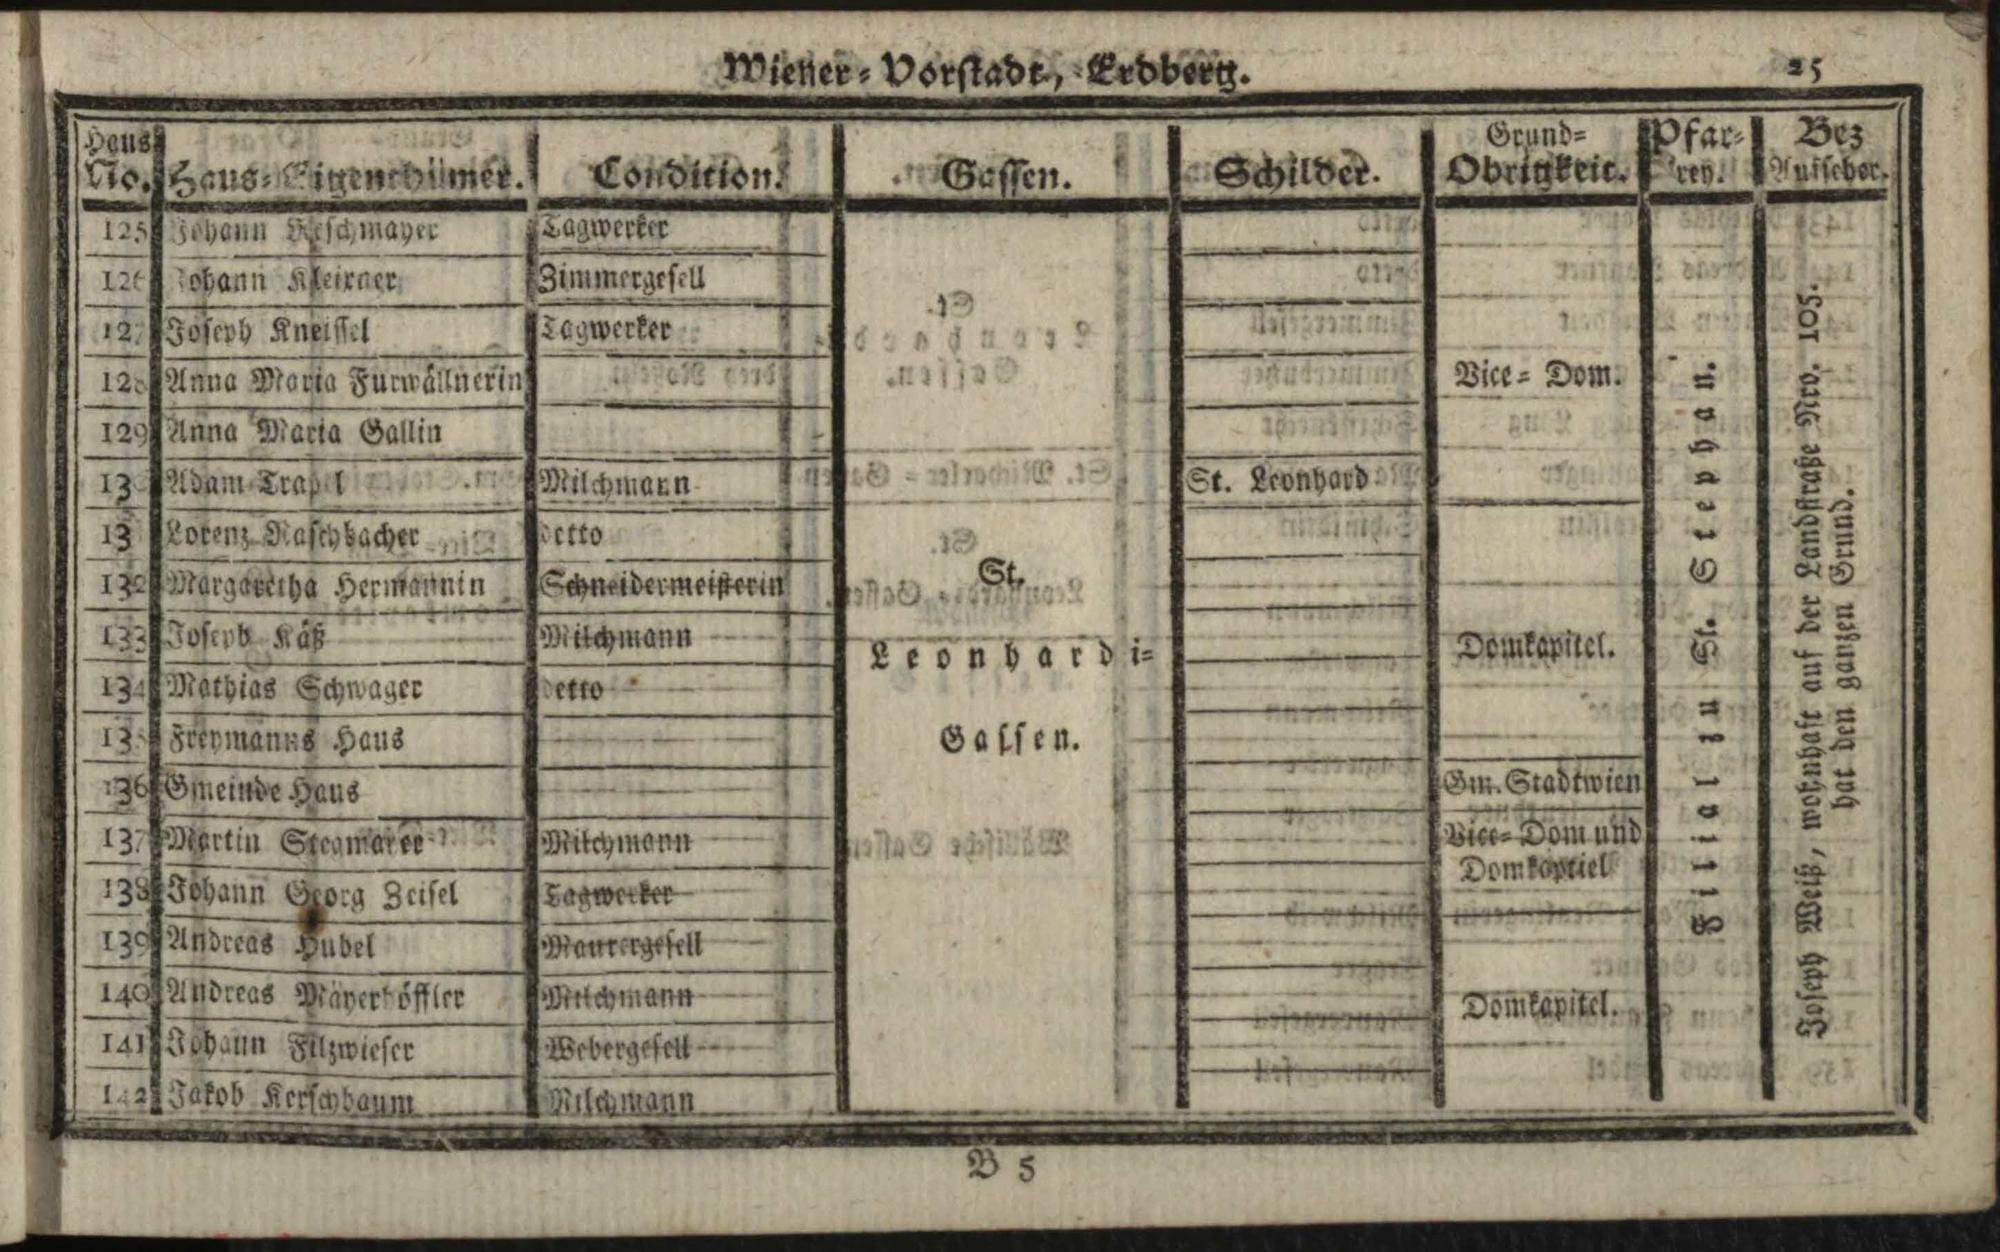 Wiener-Vorstadt, Erdberg. 25
Haus No. Haus-Eigenthümer. Condition. Gassen. Schilder. Grund-Obrigkeit. Pfarrey. Bez Aufseher.
125 Johann Tagwerker
126 Johann Zimmergesell
127 Joseph Kneissel Tagwerker
128 Anna Maria Furwällnerin Vice-Dom.
129 Anna Maria Gallin
13 Adam Milchmann St. Leonhard
13 Lorenz Raschbacher detto
132 Margaretha Hermannin Schneidermeisterin St.
133 Joseph Käß Milchmann Leonhardi- Domkapitel.
134 Mathias Schwager detto
135 Freymanns Haus Gassen.
136 Gmeinde Haus Gm. Stadtwien
137 Martin Milchmann Vice-Dom und
Domkaptiel
138 Johann Georg Zeisel Tagwerker
139 Andreas Hubel Maurergesell
140 Andreas Mäyerhöffler Milchmann Domkapitel.
141 Johann Filzwieser Webergesell
142 Jakob Kerschbaum Milchmann
Filial zu St. Stephan.
Joseph Weiß, wohnhaft auf der Landstraße Nro. 105.
hat den ganzen Grund.
B 5